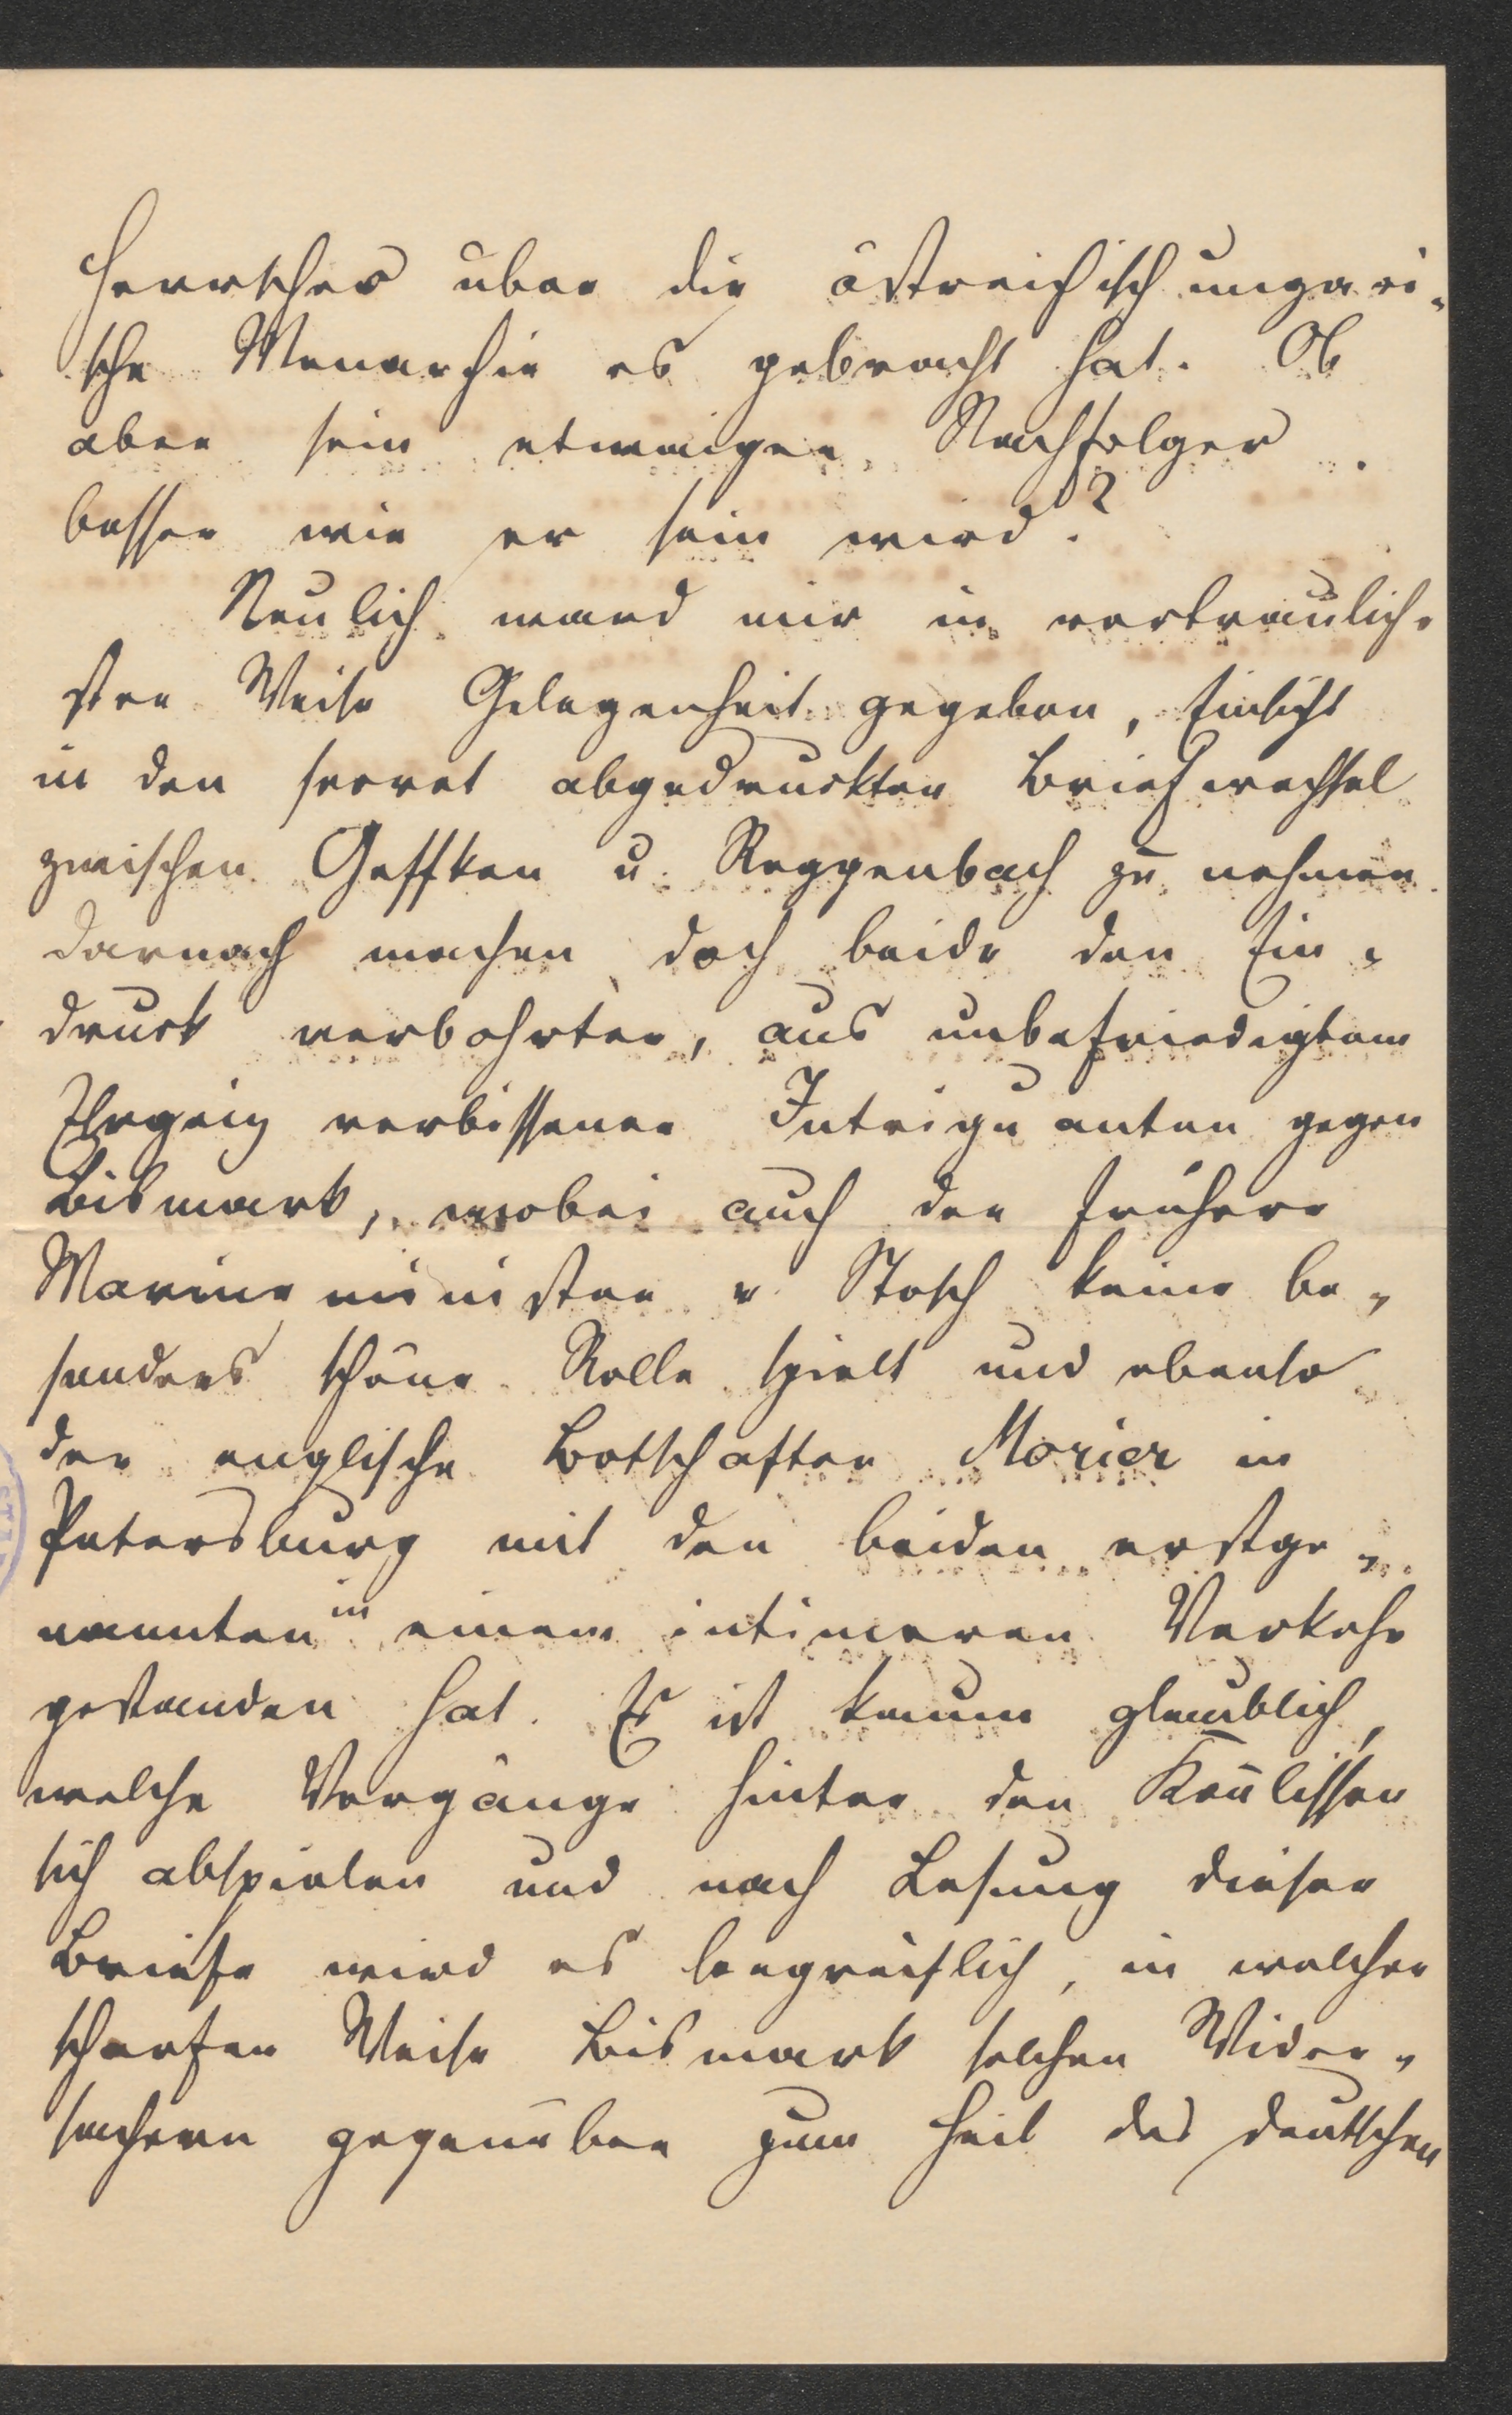 Herrscher über die östreichisch ungari-
sche Monarchie es gebracht hat. Ob
aber sein etwaiger Nachfolger
besser wie er sein wird?
Neulich ward mir in vertraulich-
ster Weise Gelegenheit gegeben, Einsicht
in den secret abgedruckten Briefwechsel
zwischen Geffken u. Roggenbach zu nehmen
darnach machen doch beide den Ein-
druck verbohrter, aus unbefriedigtem
Ehrgeiz verbissener Intriguanten gegen
Bismark, wobei auch der frühere
Marineminister v. Stosch keine be-
sonders schöne Rolle spielt und ebenso
der englische Botschafter Morier in
Petersburg mit den beiden erstge-
nannten in einem intimeren Verkehr
gestanden hat. Es ist kaum glaublich,
welche Vorgänge hinter den Koulissen
sich abspielen und nach Lesung dieser
Briefe wird es begreiflich, in welcher
scharfen Weise Bismark solchen Wider-
sachern gegenüber zum Heil des deutschen